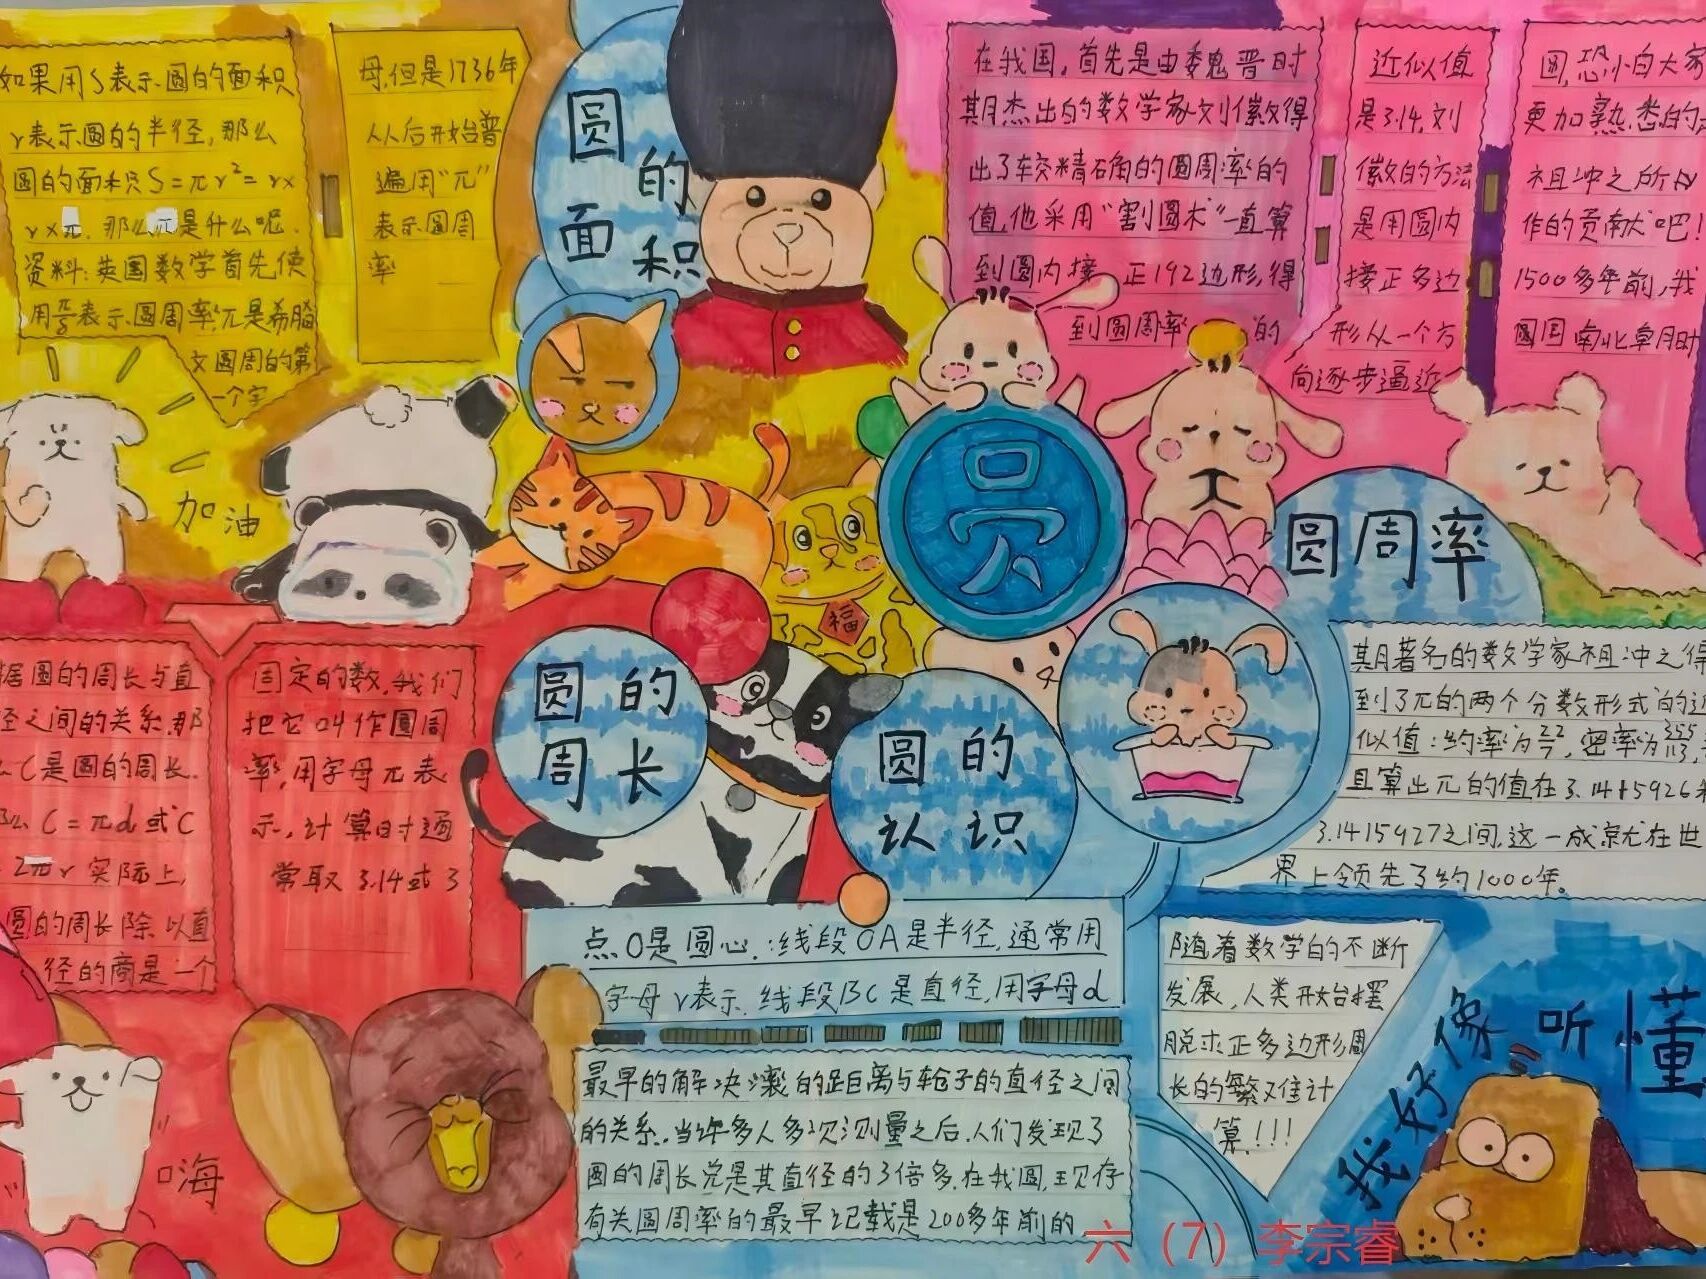 如果用S表示圆的面积
r表示圆的半径,那么
圆的面积S=πr²=rx
rxπ.那么π是什么呢.
资料:英国数学首先使
用π/δ表示圆周率π是希腊
文圆周的第
一个字
母,但是1736年
从后开始普
遍用“π”
表示圆周
率
圆的
面积
在我国,首先是由魏晋时
期杰出的数学家刘徽得
出了较精确的圆周率的
值,他采用“割圆术”一直算
到圆内接正192边形,得
到圆周率的
近似值
是3.14.刘
徽的方法
是用圆内
接正多边
形从一个方
向逐步逼近
圆,恐怕大家
更加熟悉的
祖冲之所
作的贡献吧!
1500多年前,我
国南北朝时
加油
福
圆
圆周率
期著名的数学家祖冲之得
到了π的两个分数形式的近
似值:约率为22/7,密率为355/113,
且算出π的值在3.1415926和
3.1415927之间,这一成就在世
界上领先了约1000年。
据圆的周长与直
径之间的关系.那
C是圆的周长.
那么C=πd或C
=2πr实际上,
圆的周长除以直
径的商是一个
固定的数,我们
把它叫作圆周
率,用字母π表
示,计算时通
常取3.14或3
圆的
周长
圆的
认识
点O是圆心.:线段OA是半径,通常用
字母r表示.线段BC是直径,用字母d
最早的解决滚的距离与轮子的直径之间
的关系.当年多人多次测量之后,人们发现了
圆的周长总是其直径的3倍多.在我国,现存
有关圆周率的最早记载是200多年前的
随着数学的不断
发展,人类开始摆
脱求正多边形周
长的繁难计
算!!!
我好像听懂
嗨
六（7）李宗睿